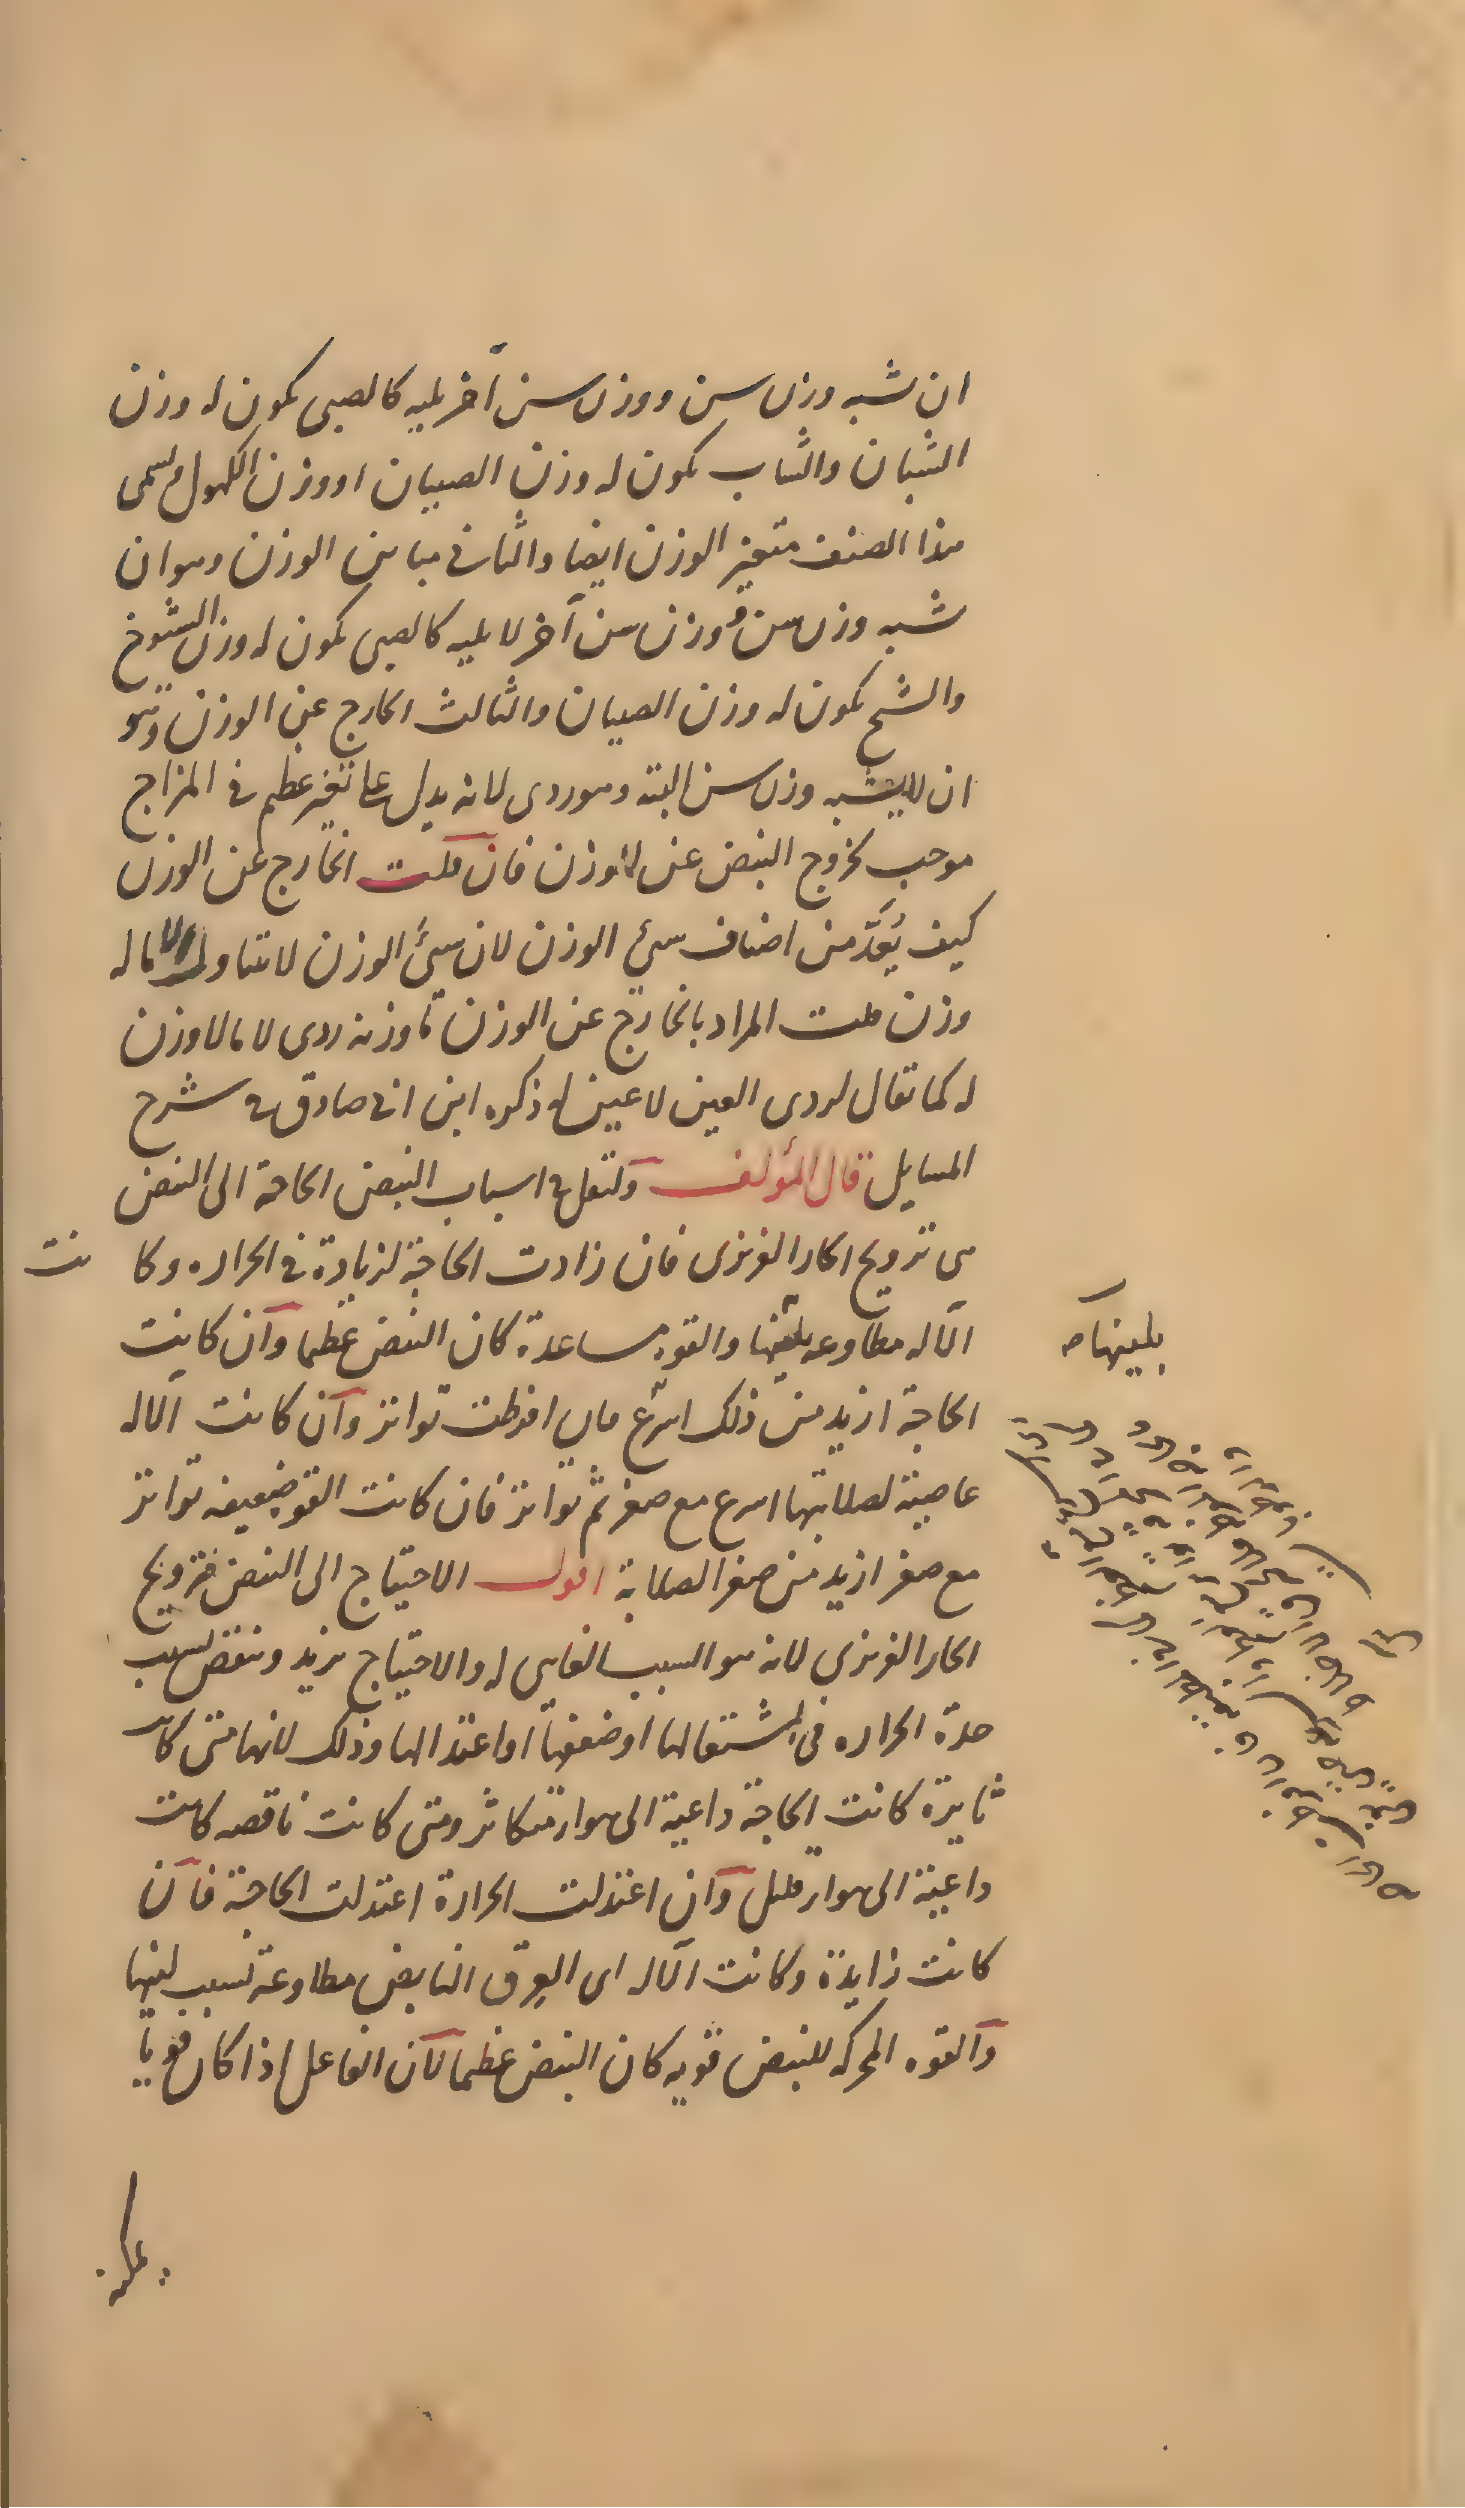 ان شبه وزن سن ووزن سن آخر يليه كالصبى يكون له وزن
الشبان والشاب يكون له وزن الصبيان او وزن الكهول ويسمى
هذا الصنف متغير الوزن ايضا والثانى مباين الوزن وهو ان
شبه وزن سن ووزن سن آخر لا يليه كالصبى يكون له وزن الشيوخ
والشيخ يكون له وزن الصبيان والثالث الخارج عن الوزن وهو
ان لا يشبه وزن سن البته وهو ردى لانه يدل على تغير عظيم فى المزاج
موجب لخروج النبض عن الوزن فان قلت الخارج عن الوزن
كيف يُعَدّ من اصناف سيئ الوزن لان سيئ الوزن لا يتناول الا ما له
وزن قلت المراد بالخارج عن الوزن ما وزنه ردى لا ما لا وزن
له كما يقال لردى العين لا عين له ذكره ابن ابى صادق فى شرح
المسايل قال المؤلف ولنقل فى اسباب النبض الحاجة الى النبض
هى ترويح الحار الغريزى فان زادت الحاجة لزيادة فى الحراره وكا نت
الآله مطاوعه بلينها والقوه مساعدة كان النبض عظيما وان كانت
الحاجة ازيد من ذلك اسرع فان افرطت تواتر وان كانت الآله
عاصية لصلابتها اسرع مع صغر ثم تواتر فان كانت القوه ضعيفه تواتر
مع صغر ازيد من صغر الصلابة اقول الاحتياج الى النبض فترويح
الحار الغريزى لانه هو السبب الغايى له والاحتياج يزيد وينقص بسبب
حدة الحراره فى اشتعالها او ضعفها او اعتدالها وذلك لانها متى كانت
ثايرة كانت الحاجة داعية الى هواء متكاثر ومتى كانت ناقصه كانت
داعية الى هواء قليل وان اعتدلت الحرارة اعتدلت الحاجة فان
كانت زايدة وكانت الآله اى العرق النابض مطاوعة بسبب لينها
والقوه المحركه للنبض قويه كان النبض عظيما لان الفاعل اذا كان قويا
بلينها صه